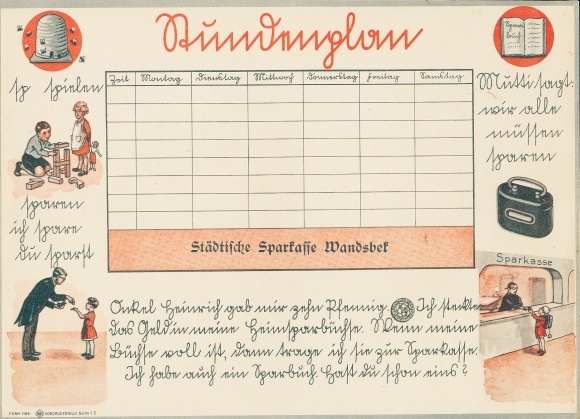 Stundenplan
Spar-
buch
sp spielen
sparen
ich spare
du sparst
Zeit Montag Dienstag Mittwoch Donnerstag Freitag Samstag
Städtische Sparkasse Wandsbek
Mutti sagt:
wir alle
müssen
sparen
Sparkasse
Onkel Heinrich gab mir zehn Pfennig. Ich steckte
das Geld in meine Heimsparbüchse. Wenn meine
Büchse voll ist, dann trage ich sie zur Sparkasse.
Ich habe auch ein Sparbuch. Hast du schon eins?